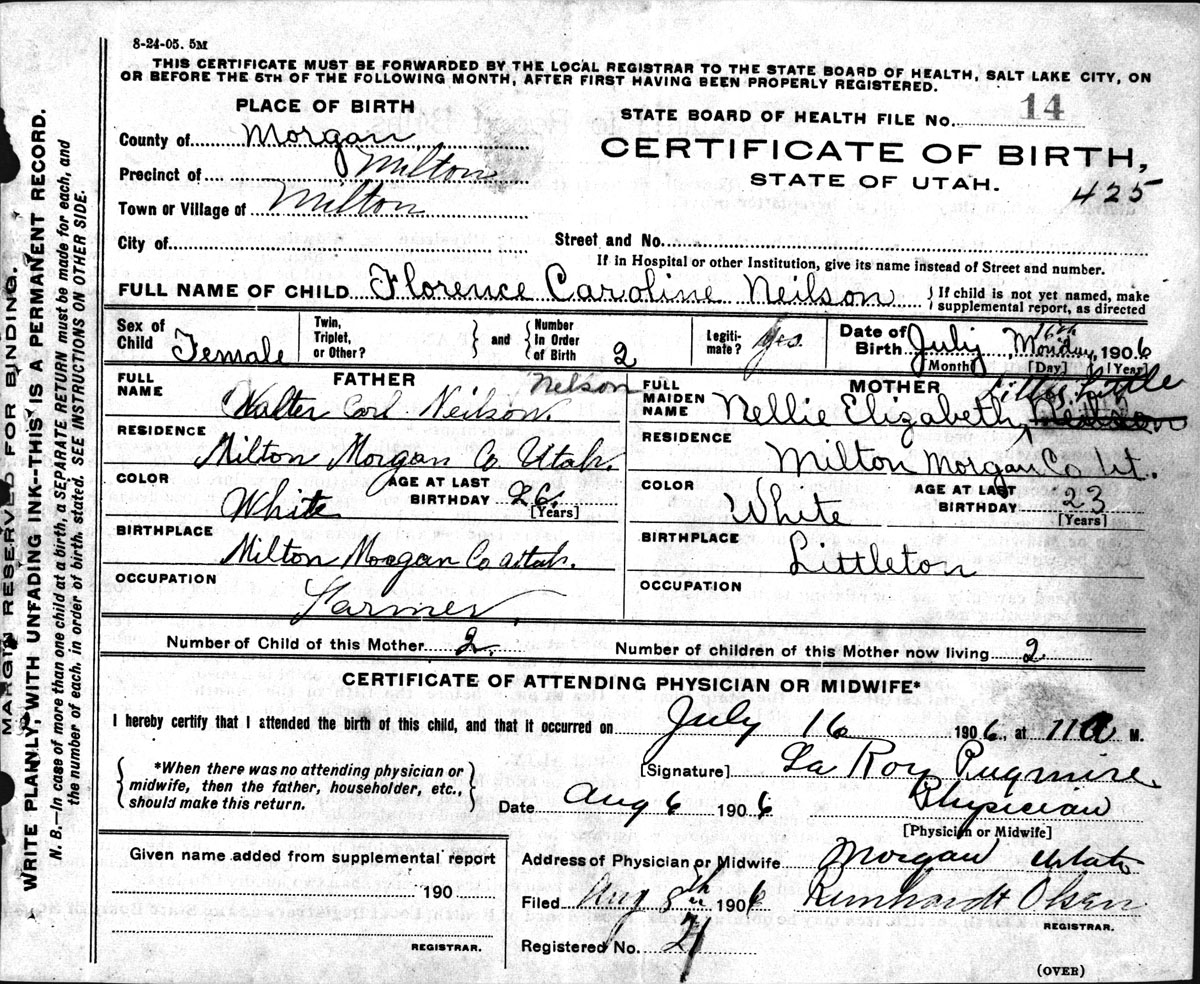 8-24-05. 5M
THIS CERTIFICATE MUST BE FORWARDED BY THE LOCAL REGISTRAR TO THE STATE BOARD OF HEALTH, SALT LAKE CITY, ON
OR BEFORE THE 5TH OF THE FOLLOWING MONTH, AFTER FIRST HAVING BEEN PROPERLY REGISTERED.
MARGIN RESERVED FOR BINDING.
WRITE PLAINLY, WITH UNFADING INK--THIS IS A PERMANENT RECORD.
N. B.—In case of more than one child at a birth, a SEPARATE RETURN must be made for each, and
the number of each, in order of birth, stated. SEE INSTRUCTIONS ON OTHER SIDE.
PLACE OF BIRTH
County of Morgan
Precinct of Milton
Town or Village of Milton
City of
STATE BOARD OF HEALTH FILE NO. 14
CERTIFICATE OF BIRTH,
STATE OF UTAH.
425
Street and No.
If in Hospital or other Institution, give its name instead of Street and number.
FULL NAME OF CHILD Florence Caroline Neilson
If child is not yet named, make
supplemental report, as directed
Sex of
Child Female
Twin,
Triplet,
or Other?
and
Number
in Order
of Birth 2
Legiti-
mate? Yes
Date of
Birth July Monday 16th, 1906
[Month] [Day] [Year]
FATHER
FULL
NAME
Nelson
Walter Carl Neilson
RESIDENCE
Milton Morgan Co Utah.
COLOR
White
AGE AT LAST
BIRTHDAY 26
[Years]
BIRTHPLACE
Milton Morgan Co Utah.
OCCUPATION
Farmer
MOTHER
FULL
MAIDEN
NAME
Little
Nellie Elizabeth
RESIDENCE
Milton Morgan Co Ut.
COLOR
White
AGE AT LAST
BIRTHDAY 23
[Years]
BIRTHPLACE
Littleton
OCCUPATION
Number of Child of this Mother 2
Number of children of this Mother now living 2
CERTIFICATE OF ATTENDING PHYSICIAN OR MIDWIFE*
I hereby certify that I attended the birth of this child, and that it occurred on July 16 1906, at 11 A M.
*When there was no attending physician or
midwife, then the father, householder, etc.,
should make this return.
[Signature] La Roy Pugmire
Date Aug 6 1906 Physician
[Physician or Midwife]
Given name added from supplemental report
190
REGISTRAR.
Address of Physician or Midwife Morgan Utah
Filed Aug 8th 1906 Reinhardt Olsen
REGISTRAR.
Registered No. 21
(OVER)